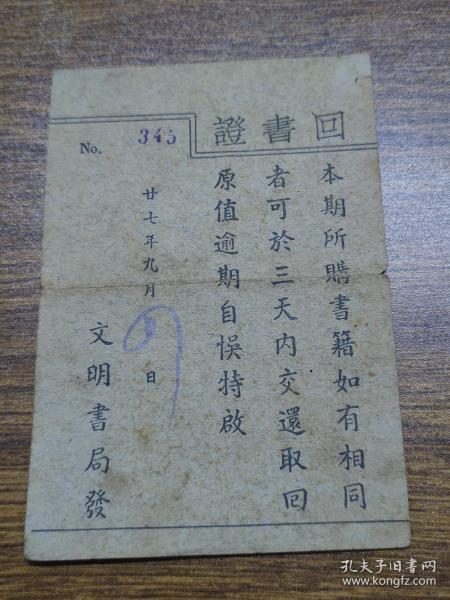 回書證
No. 345
本期所購書籍如有相同
者可於三天內交還取回
原值逾期自悞特啟
廿七年九月日
文明書局發
孔夫子旧书网
www.kongfz.com